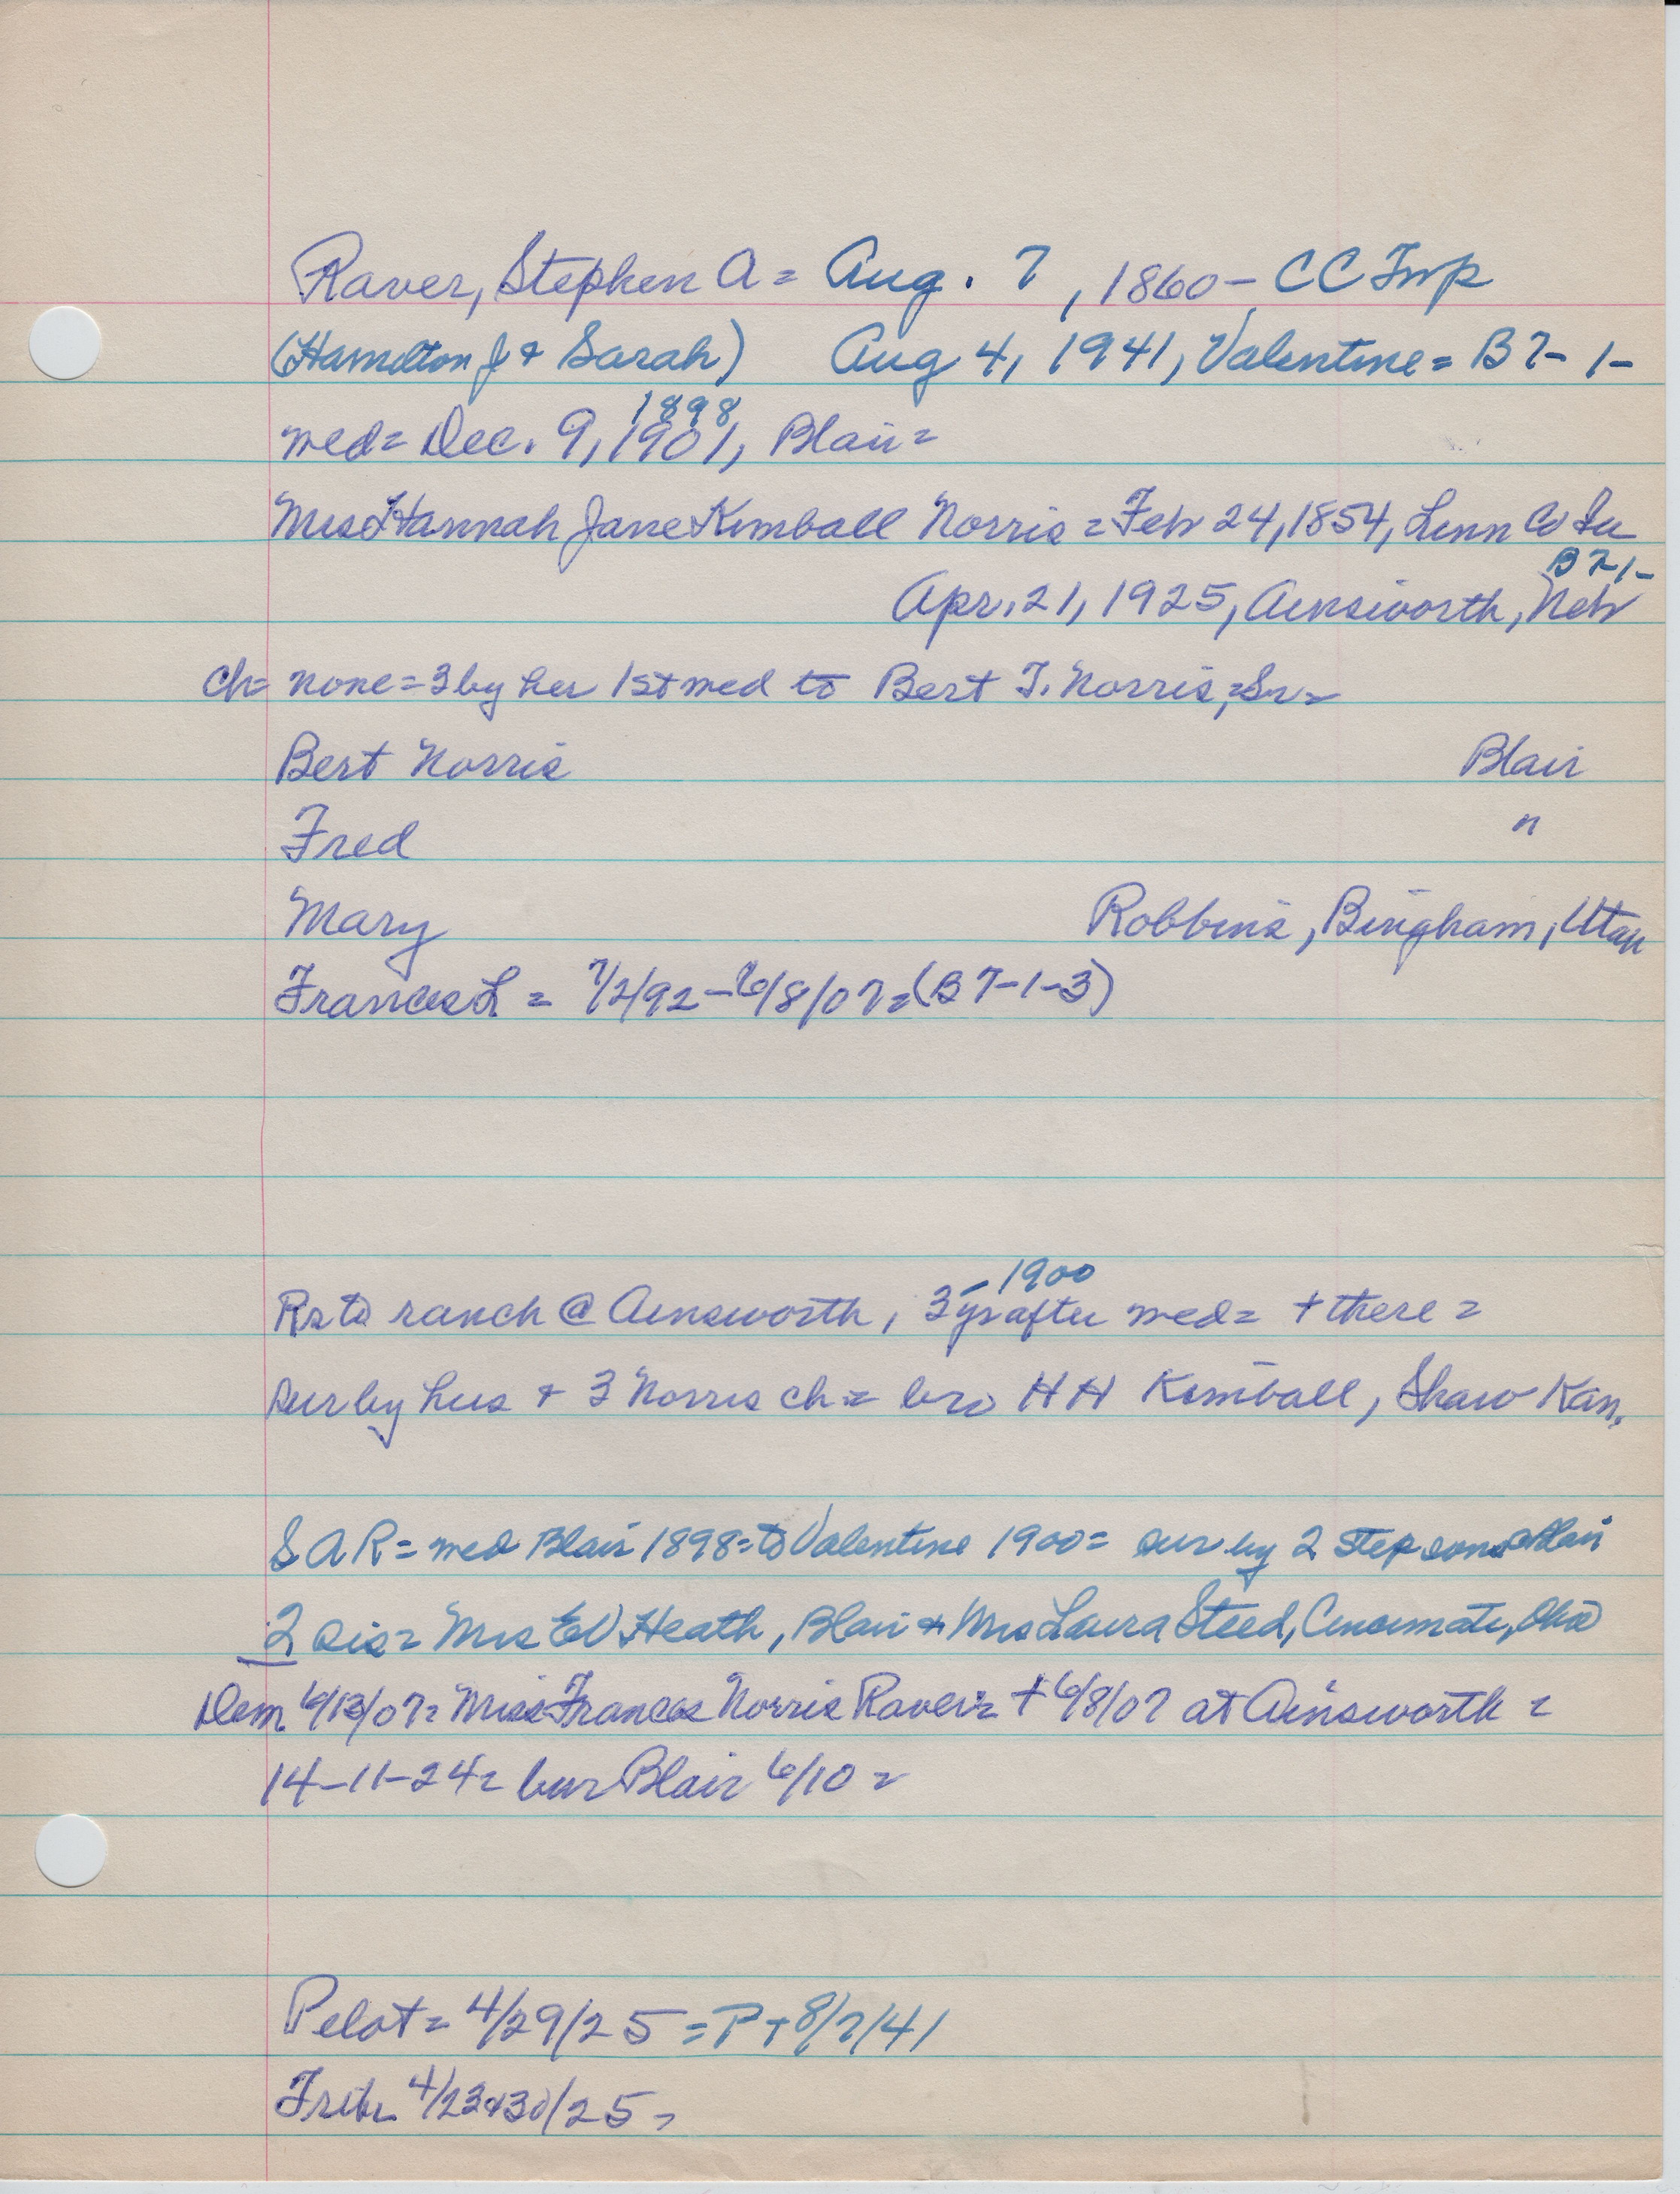 Raver, Stephen A = Aug. 7, 1860 - CC Twp
(Hamilton J + Sarah) Aug 4, 1941, Valentine = B7-1-
1898
med = Dec. 9, 1901, Blair =
Mrs Hannah Jane Kimball Norris = Feb 24, 1854, Linn Co Ia
B7-1-
Apr. 21, 1925, Ainsworth, Neb
ch = none = 3 by her 1st med to Bert T. Norris, Sr =
Bert Norris Blair
Fred "
Mary Robbins, Bingham, Utah
Frances L = 7/2/92 - 6/8/07 = (B7-1-3)
- 1900
Rs to ranch @ Ainsworth, 3 yr after med = + there =
sur by hus + 3 Norris ch = bro H H Kimball, Shaw Kan.
S A R = med Blair 1898 = to Valentine 1900 = sur by 2 step sons Blair
2 sis = Mrs Ed Heath, Blair + Mrs Laura Steed, Cincinnati, Ohio
Dem 6/13/07 = Miss Frances Norris Raver = + 6/8/07 at Ainsworth =
14-11-24 = bur Blair 6/10 =
Pilot = 4/29/25 = P + 8/7/41
Trib = 4/23+30/25 =